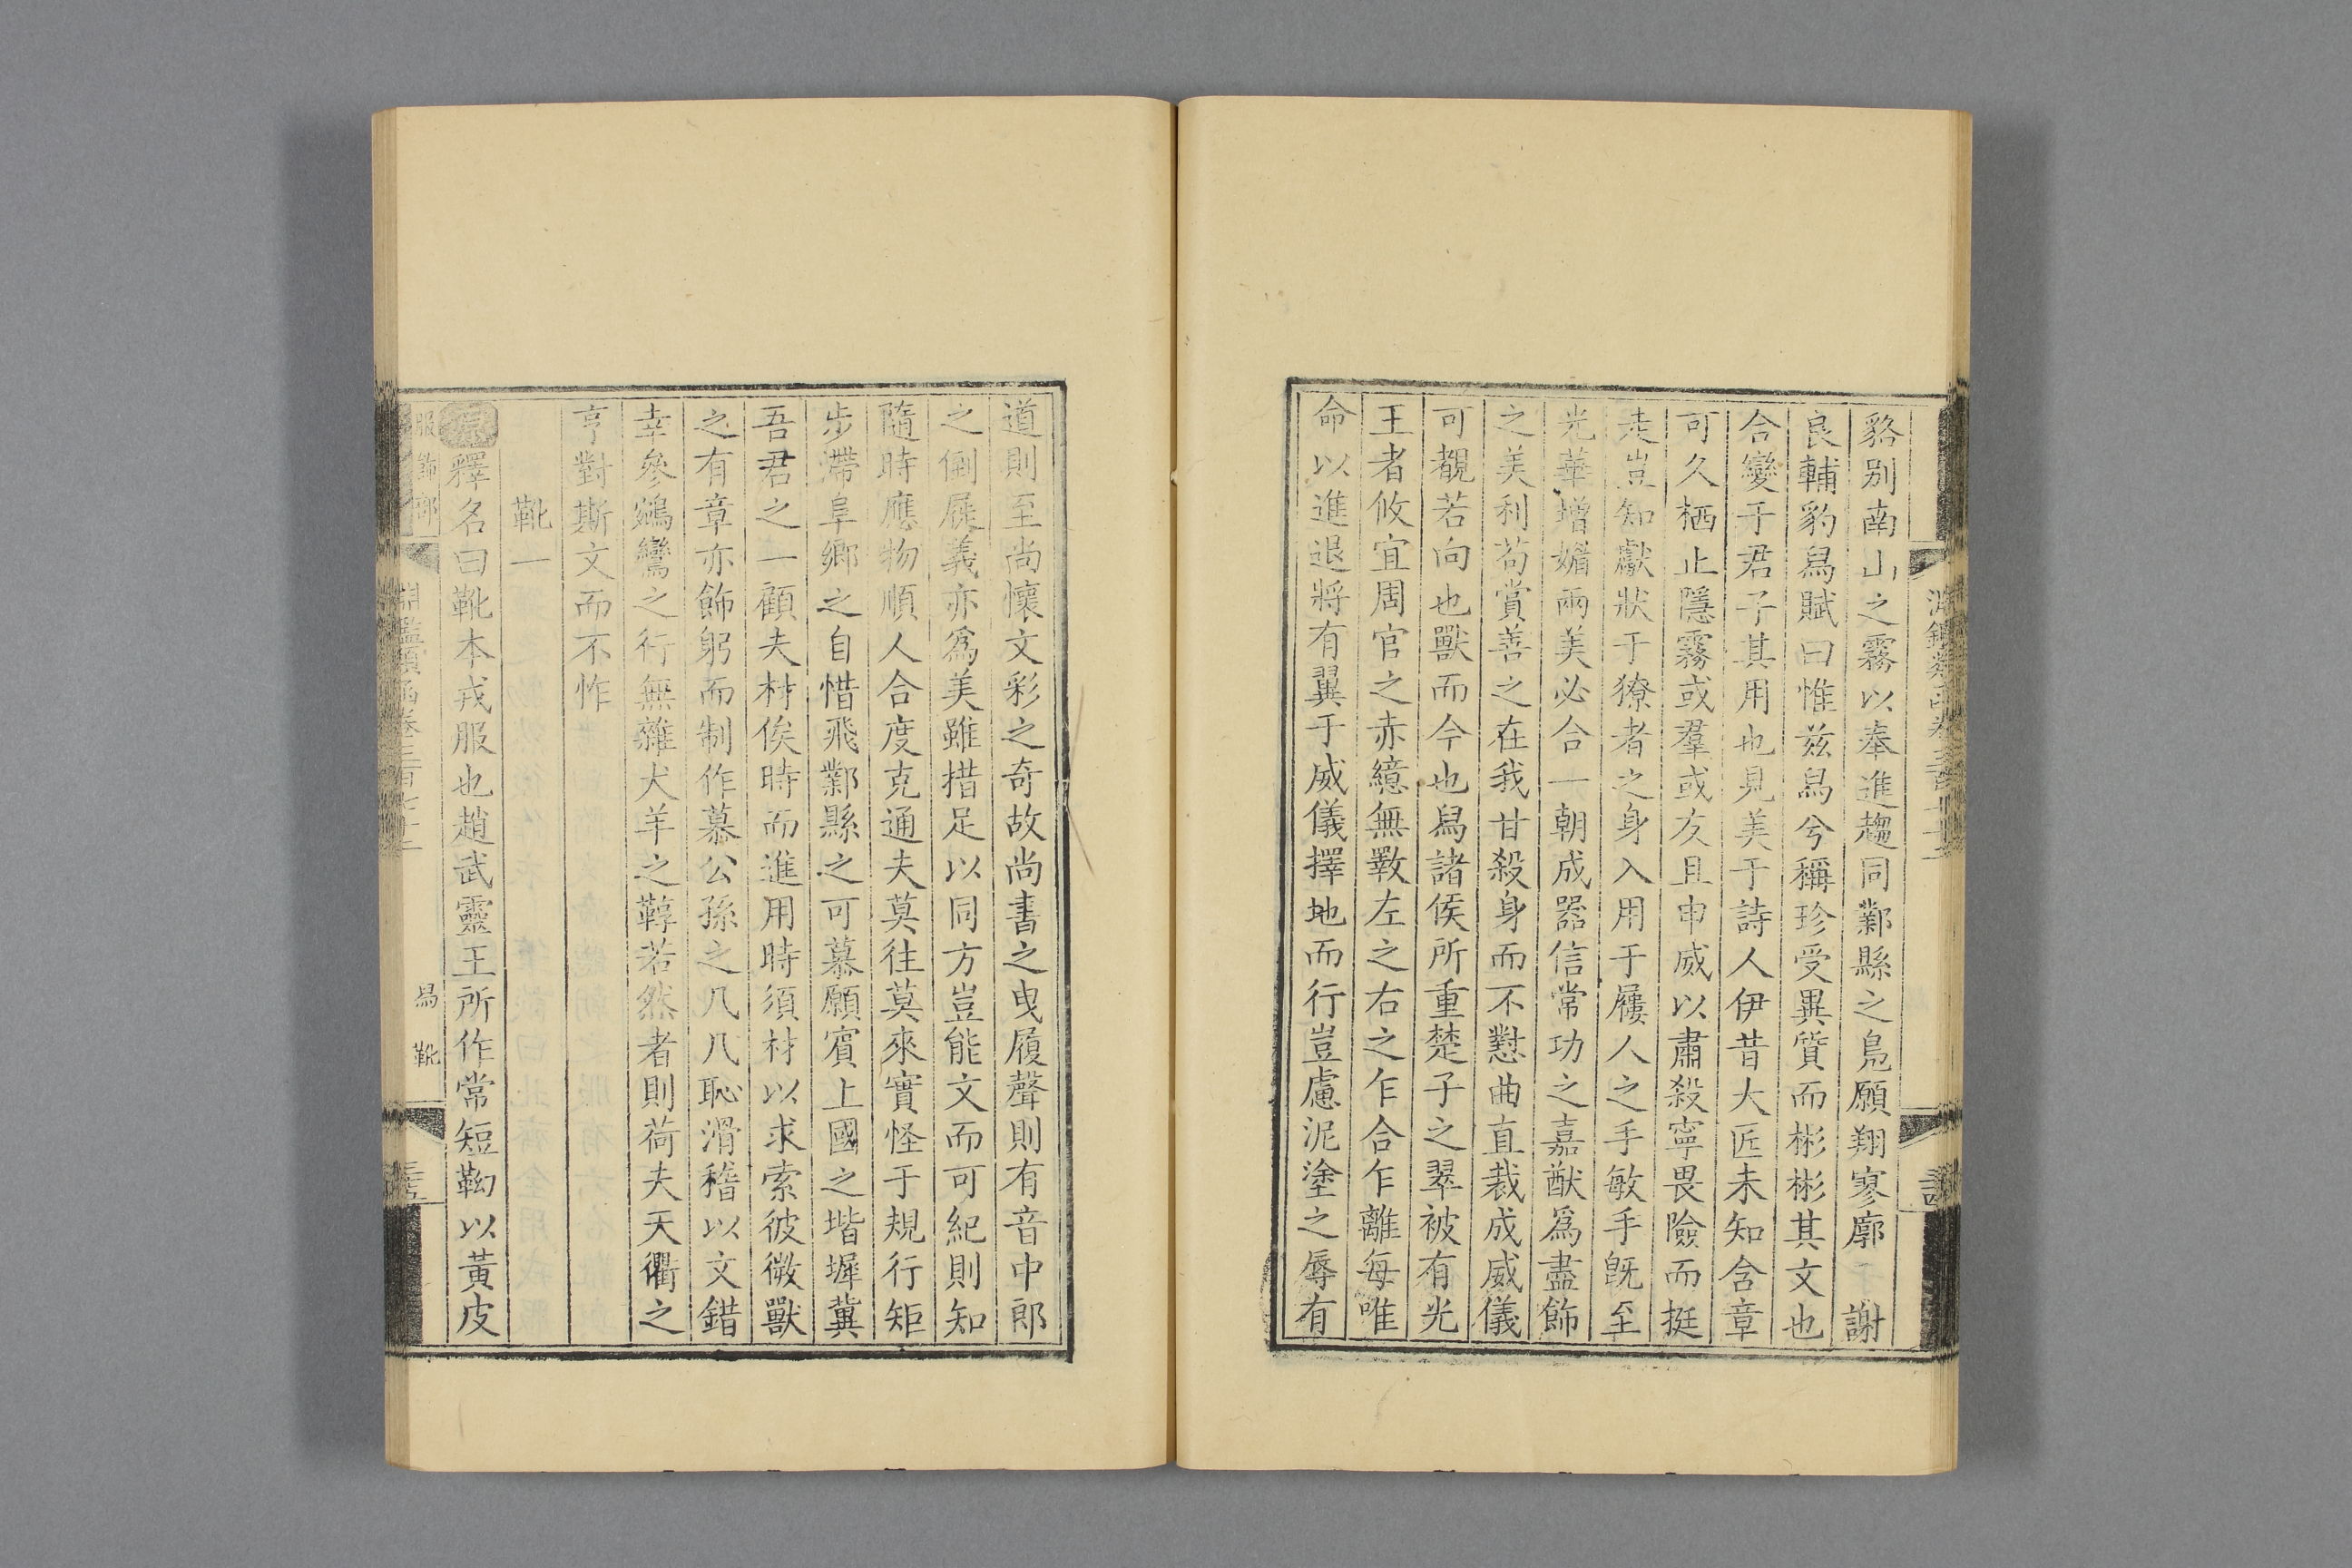 貉别南山之霧以奉進趨同鄴縣之鳬願翔寥廓 謝
良輔豹舄賦曰惟兹舄兮稱珍受異質而彬彬其文也
合變于君子其用也見美于詩人伊昔大匠未知含章
可久栖止隱霧或羣或友且申威以肅殺寧畏險而挺
走豈知獻狀于獠者之身入用于屨人之手敏手旣至
光華增媚兩美必合一朝成器信常功之嘉猷爲盡飾
之美利苟賞善之在我甘殺身而不懟曲直裁成威儀
可覩若向也獸而今也舄諸侯所重楚子之翠被有光
王者攸宜周官之赤繶無斁左之右之乍合乍離每唯
命以進退將有翼于威儀擇地而行豈慮泥塗之辱有
道則至尚懷文彩之奇故尚書之曳履聲則有音中郎
之倒屣義亦爲美雖措足以同方豈能文而可紀則知
隨時應物順人合度克通夫莫往莫來實怪于規行矩
步滯阜鄉之自惜飛鄴縣之可慕願賓上國之堦墀冀
吾君之一顧夫材俟時而進用時須材以求索彼微獸
之有章亦飾躬而制作慕公孫之几几恥滑稽以文錯
幸參鵷鸞之行無雜犬羊之鞹若然者則荷夫天衢之
亨對斯文而不怍
靴一
釋名曰靴本戎服也趙武靈王所作常短靿以黃皮
服飾部
淵鑑類函卷三百七十
舄 靴